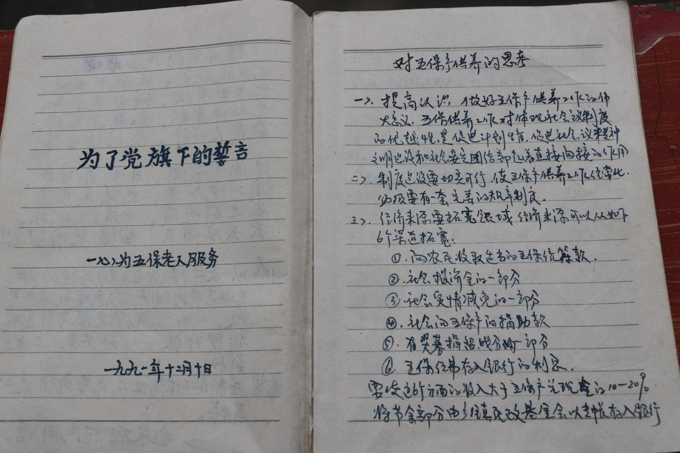 为了党旗下的誓言
一心为五保老人服务
一九九一年十二月十日
对五保户供养的思考
一、提高认识,做好五保户供养工作的伟
大意义,五保供养工作对体现社会主义制度
的优越性,是促进计划生育,促进社会主义精神
文明建设和社会安定团结都起着直接间接的作用
二、制度建设要切实可行,使五保户供养工作经常化,
必须要有一套完善的规章制度。
三、经济来源要拓宽领域,经济来源可以从如下
6个渠道拓宽:
①向农民收取定额的五保统筹款.
②.社会 资金的一部分
③.社会 减免的一部分
④.社会向五保户的捐助款
⑤.有奖募捐 一部分
⑥五保经费存入银行的利息.
要使这6个方面的收入大于五保户兑现 的10-20%
将节余部分由乡镇民政基金会以 存入银行